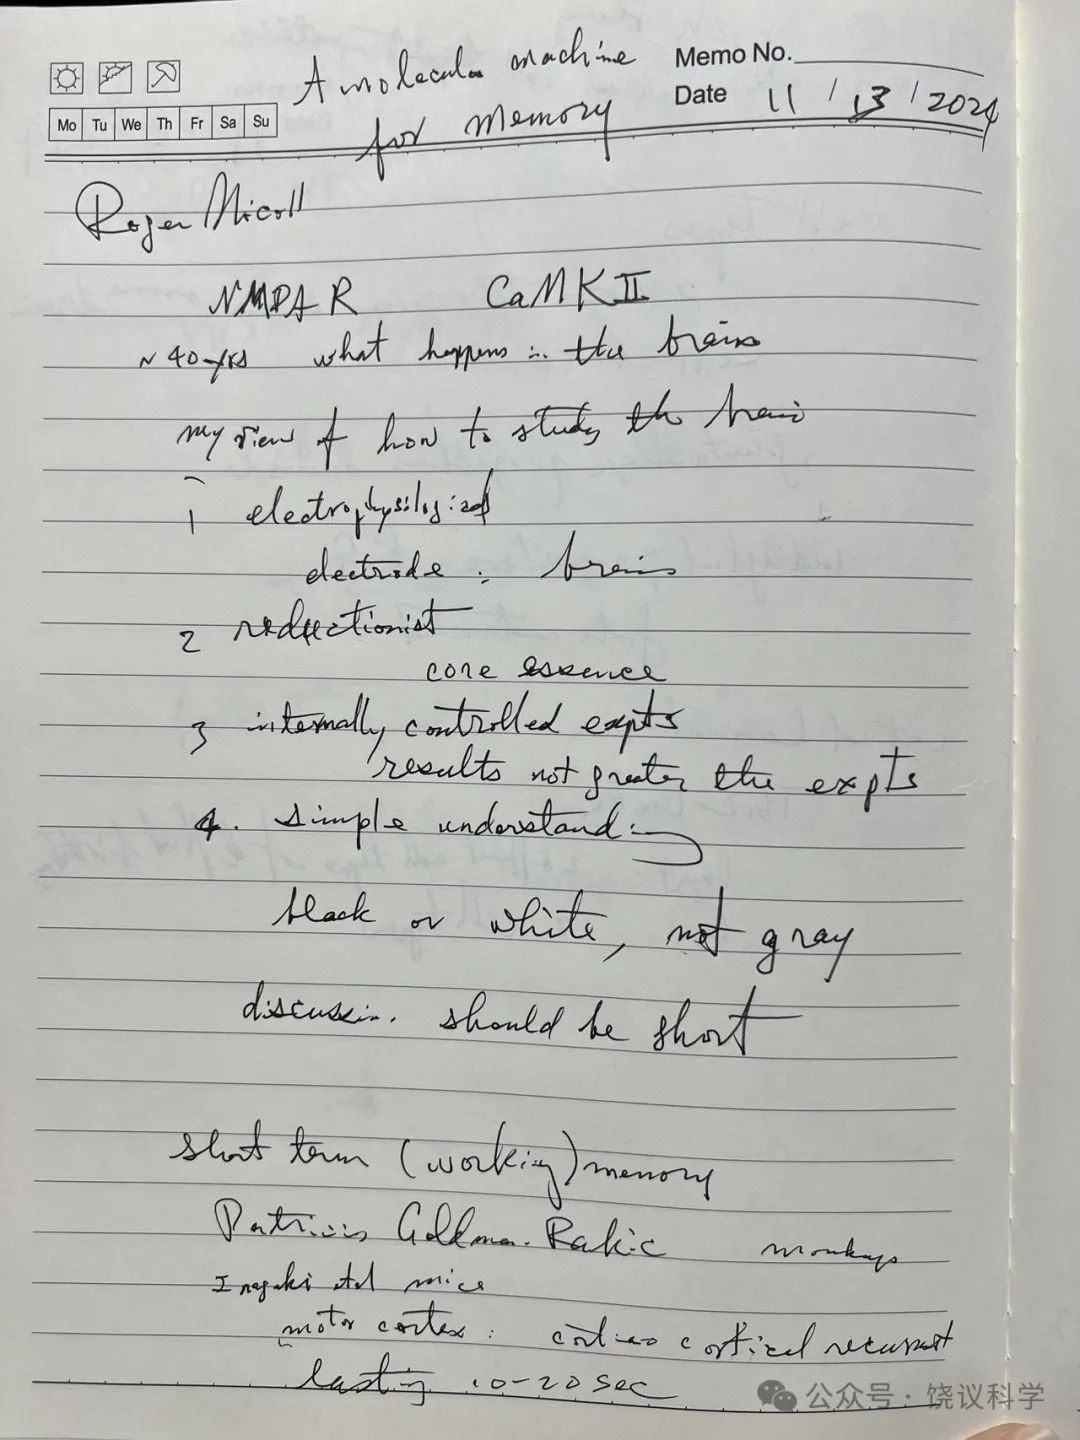 A molecular machine
for memory
Memo No.
Date 11/13/2024
Mo Tu We Th Fr Sa Su
Roger Nicoll
NMDAR CaMKII
~40 yrs what happens in the brain
my view of how to study the brain
1 electrophysiological
electrode in brain
2 reductionist
core essence
3 internally controlled expts
results not greater the expts
4. simple understanding
black or white, not gray
discussion should be short
short term (working) memory
Patricia Goldman-Rakic monkeys
Inagaki et al mice
motor cortex: cortico cortical recurrent
lasting 10-20 sec
公众号·饶议科学